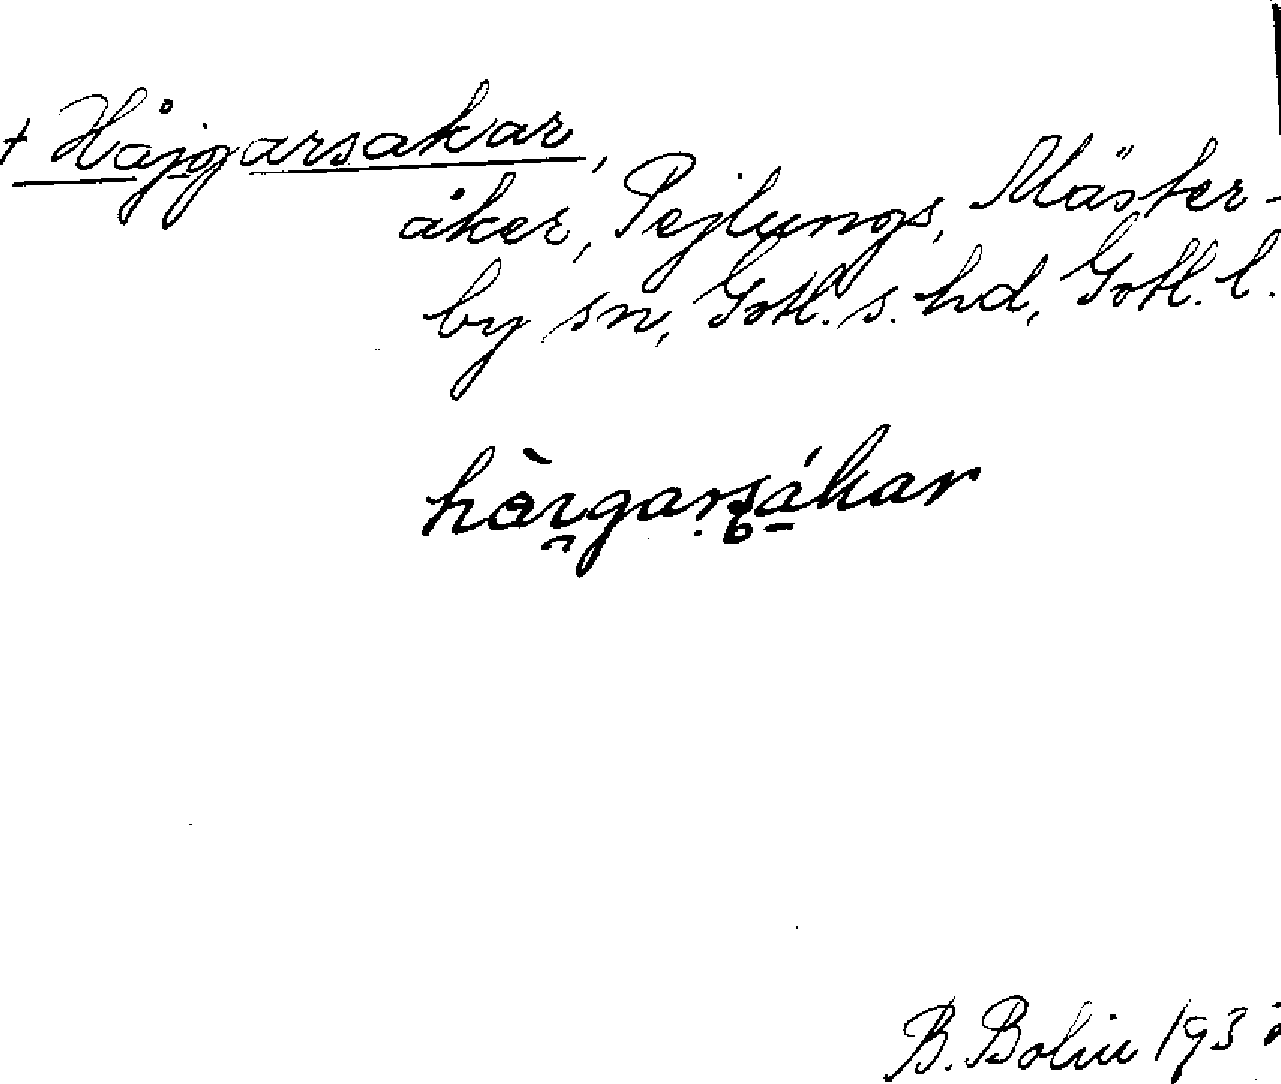 + Håjgarsakar,
åker, Pejlungs, Mäster-
by sn, Gotl. s. hd, Gotl. l.
hàɪ̯garsákar
B. Bolin 193